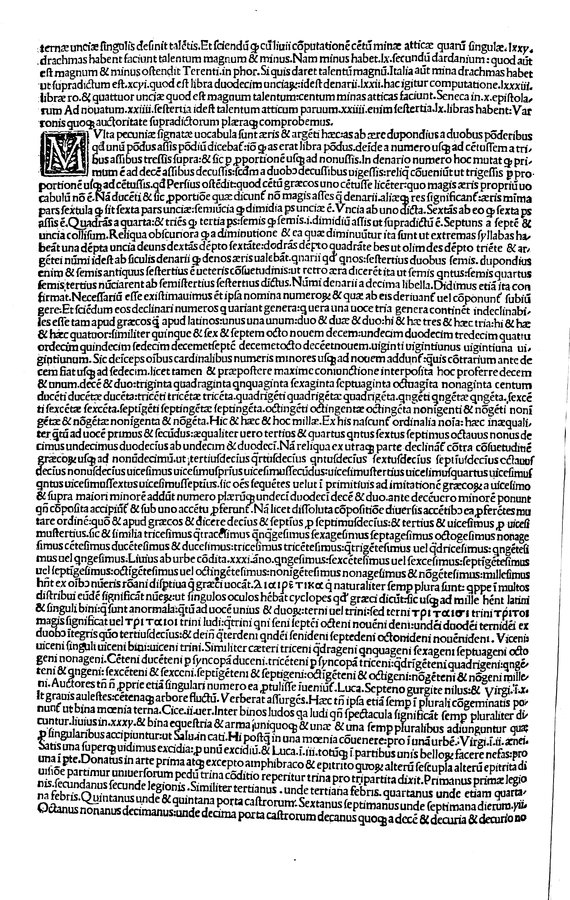 ternæ unciæ singulis desinit talētis. Et sciendū ꝙ cū liuii cōputatione cētū minæ atticæ quarū singulæ .lxxv.
drachmas habent faciunt talentum magnum & minus. Nam minus habet .lx. secundū dardanium: quod aūt
est magnum & minus ostendit Terenti. in phor. Si quis daret talentū magnū. Italia aūt mina drachmas habet
ut supradictum est .xcvi. quod est libra duodecim unciæ: idest denarii .lxxii. hac igitur computatione .lxxxiii.
libræ ro. & quattuor unciæ quod est magnum talentum: centum minas atticas faciunt. Seneca in .x. epistola
rum Ad nouatum .xxiiii. sestertia idest talentum atticum paruum .xxiiii. enim sestertia .lx. libras habent: Var
ronis quoqꝫ auctoritate supradictorum pleraqꝫ comprobemus.
MVlta pecuniæ signatæ uocabula sunt æris & argēti hæc: as ab ære dupondius a duobus pōderibus
qd̄ unū pōdus assis pōdiū dicebāt: iō ꝙ as erat libra pōdus. deīde a numero usqꝫ ad cētussem a tri
bus assibus tressis supra: & sic ꝓportione usqꝫ ad nonussis. In denario numero hoc mutat ꝙ pri
mum ē ad decē assibus decussis: secūdum a duobꝰ decussibus uigessis: reliq̄ cōueniūt ut trigessis ꝓ pro
portione usqꝫ ad cētussis. qd̄ Persius ostēdit: quod cētū græcos uno cētusse licēter: quo magis æris propriū uo
cabulū nō ē. Nā ducēti & sic ꝓportiōe quæ dicunt nō magis asses q̄ denarii. aliæqꝫ res significant æris mīma
pars sextula ꝙ sit sexta pars unciæ: semiūcia ꝙ dimidia ps unciæ ē. Vncia ab uno dicta. Sextās ab eo ꝙ sexta ps
assis ē. Quadrās a quarta: & triēs ꝙ tertia ps: semis ꝙ semis .i. dimidiū assis ut supradictū ē. Septunx a septē &
uncia collisum. Reliqua obscuriora ꝙ a diminutione & ea quæ diminuūtur ita sunt ut extremas syllabas ha
beāt una dēpta uncia deunx dextās dēpto sextāte: dodrās dēpto quadrāte bes ut olim des dēpto triēte & ar
gētei nūmi idest ab siculis denarii ꝙ denos æris ualebāt. qnarii qd̄ qnos: sestertius duobus semis. dupondius
enim & semis antiquus sestertius ē ueteris cōsuetudinis: ut retro æra dicerēt ita ut semis qntus: semis quartus
semis, tertius nūciarent ab semistertius sestertius dictus. Nūmi denarii a decima libella. Didimus etiā ita con
firmat. Necessariū esse existimauimus et ipsa nomina numeroꝝ & quæ ab eis deriuant uel cōponunt subiū
gere. Et sciēdum eos declinari numeros quariant genera: quera una uoce tria genera continēt indeclinabi
les esse tam apud græcos q̄ apud latinos: unus una unum: duo & duæ & duo: hi & hæ tres & hæc tria: hi & hæ
& hæc quatuor: similiter quinque & sex & septem octo nouem decem: undecim duodecim tredecim quatu
ordecim quindecim sedecim decemseptē decemocto decēetnouem. uiginti uigintiunus uigintiuna ui
gintiunum. Sic deīceps oībus cardinalibus numeris minores usqꝫ ad nouem addunt: quis cōtrarium ante de
cem fiat usqꝫ ad sedecim. licet tamen & præpostere maxime coniunctione interposita hoc proferre decem
& unum. decē & duo: triginta quadraginta qnquaginta sexaginta septuaginta octuagīta nonaginta centum
ducēti ducētæ ducēta: tricēti tricētæ tricēta. quadrigēti quadrigētæ quadrigēta. qngēti qngētæ qngēta. sexcē
ti sexcētæ sexcēta. septigēti septingētæ septingēta. octingēti octingentæ octingēta nonigenti & nōgēti noni
gētæ & nōgētæ nonigenta & nōgēta. Hic & hæc & hoc millæ. Ex his nascunt ordinalia noīa: hæc inæquali
ter q̄tū ad uocē primus & secūdus: æqualiter uero tertius & quartus qntus sextus septimus octauus nonus de
cimus undecimus duodecīus ab undecim & duodecī. Nā reliqua ex utraqꝫ parte declināt cōtra cōsuetudinē
græcoꝝ usqꝫ ad nonūdecimū. ut tertiusdecīus q̄rtiusdecīus qntusdecīus sextusdecīus septīusdecīus octauus
decīus nonusdecīus uicesimus uicesimusprīus uicesimussecūdus: uicesimustertius uicesimusquartus uicesimus
qntus uicesimussextus uicesimusseptīus. sic oēs sequētes uelut ī primitiuis ad imitationē græcoꝝ: a uicesimo
& supra maiori minorē addūt numero plærūqꝫ undecī duodecī decē & duo. ante decēuero minorē ponunt
qn̄ cōposita accipiūt & sub uno accētu ꝓferunt. Nā licet dissoluta cōpositiōe diuersis accētibꝰ ea ꝓferētes mu
tare ordinē: quō & apud græcos & dicere decīus & septīus ꝓ septimusdecīus: & tertius & uicesimus ꝓ uicesi
mustertius. sic & similia tricesimus q̄tracesimus qnqgesimus sexagesimus septagesimus octogesimus nonage
simus cētesimus ducētesimus & ducesimus: tricesimus tricētesimus: qtrigētesimus uel qdricesimus: qngētesi
mus uel qngesimus. Liuius ab urbe cōdita .xxxi. āno. qngesimus: sexcētesimus uel sexcesimus: septigētesimus
uel septigesimus: octigētesimus uel octingētesimus: nonigētesimus nonagesimus & nōgētesimus: millesimus
hn̄t ex oībꝰ nūeris rōani disptiua q̄ græci uocāt. Διαιρετικα q̄ naturaliter semp plura sunt: qppe ī multos
distribui eūdē significāt nūeꝝ: ut singulos oculos hēbāt cyclopes qd̄ græci dicūt: sic usqꝫ ad mille hēnt latini
& singuli bini: q̄ sunt anormala: q̄tū ad uocē unius & duoꝝ: terni uel trini: sed terni τριταισι trini τριτοι
magis significāt uel τριταιοι trini ludi: q̄trini qni seni septēi octeni nouēni deni: undēi duodēi ternidēi ex
duobo ītegris quo tertiusdecīus: & deīn q̄terdeni qndēi senideni septedeni octonideni nouēnideni. Viceni
uiceni singuli uiceni bini: uiceni trini. Similiter cæteri triceni qdrageni qnquageni sexageni septuageni octo
geni nonageni. Cēteni ducēteni ꝓ syncopā duceni. tricēteni ꝓ syncopā triceni: qdrigēteni quadrigeni: qngē
teni & qngeni: sexcēteni & sexceni. septigēteni & septigeni: octigēteni & octigeni: nōgēteni & nōgeni mille
ni. Auctores tn̄ n̄ ꝓprie etiā singulari numero ea ꝓtulisse iueniunt. Luca. Septeno gurgite nilus: & Virgi. ī .x.
It grauis aulestes: cētenaqꝫ arbore fluctū. Verberat assurgēs. Hæc tn̄ ipsa etiā semp ī plurali cōgeminatis po
nunt ut bina mœnia terna. Cice. ii. uer. Inter binos ludos qa ludi qn̄ spectacula significāt semp pluraliter di
cuntur. liuius in .xxxv. & bina equestria & arma: uniquoqꝫ & unæ & una semp pluralibus adiunguntur quæ
ꝓ singularibus accipiuntur: ut Salu. in cati. Hi postq̄ in una mœnia cōuenere: pro ī unā urbē. Virgi. i. ii. ænei.
Satis una superqꝫ uidimus excidia: ꝓ unū excidiū. & Luca. i. iii. totūqꝫ ī partibus unis belloꝝ facere nefas: pro
una ī pte. Donatus in arte prima atqꝫ excepto amphibraco & epitrito quoꝝ alterū sescupla alterū epitrita di
uisiōe partimur uniuersorum pedū trina cōditio reperitur trina pro tripartita dixit. Primanus primæ legio
nis. secundanus secunde legionis. Similiter tertianus. unde tertiana febris. quartanus unde etiam quarta
na febris. Quintanus unde & quintana porta castrorum. Sextanus septimanus unde septimana dierum .vii.
Octanus nonanus decimanus: unde decima porta castrorum decanus quoqꝫ a decē & decuria & decurio no